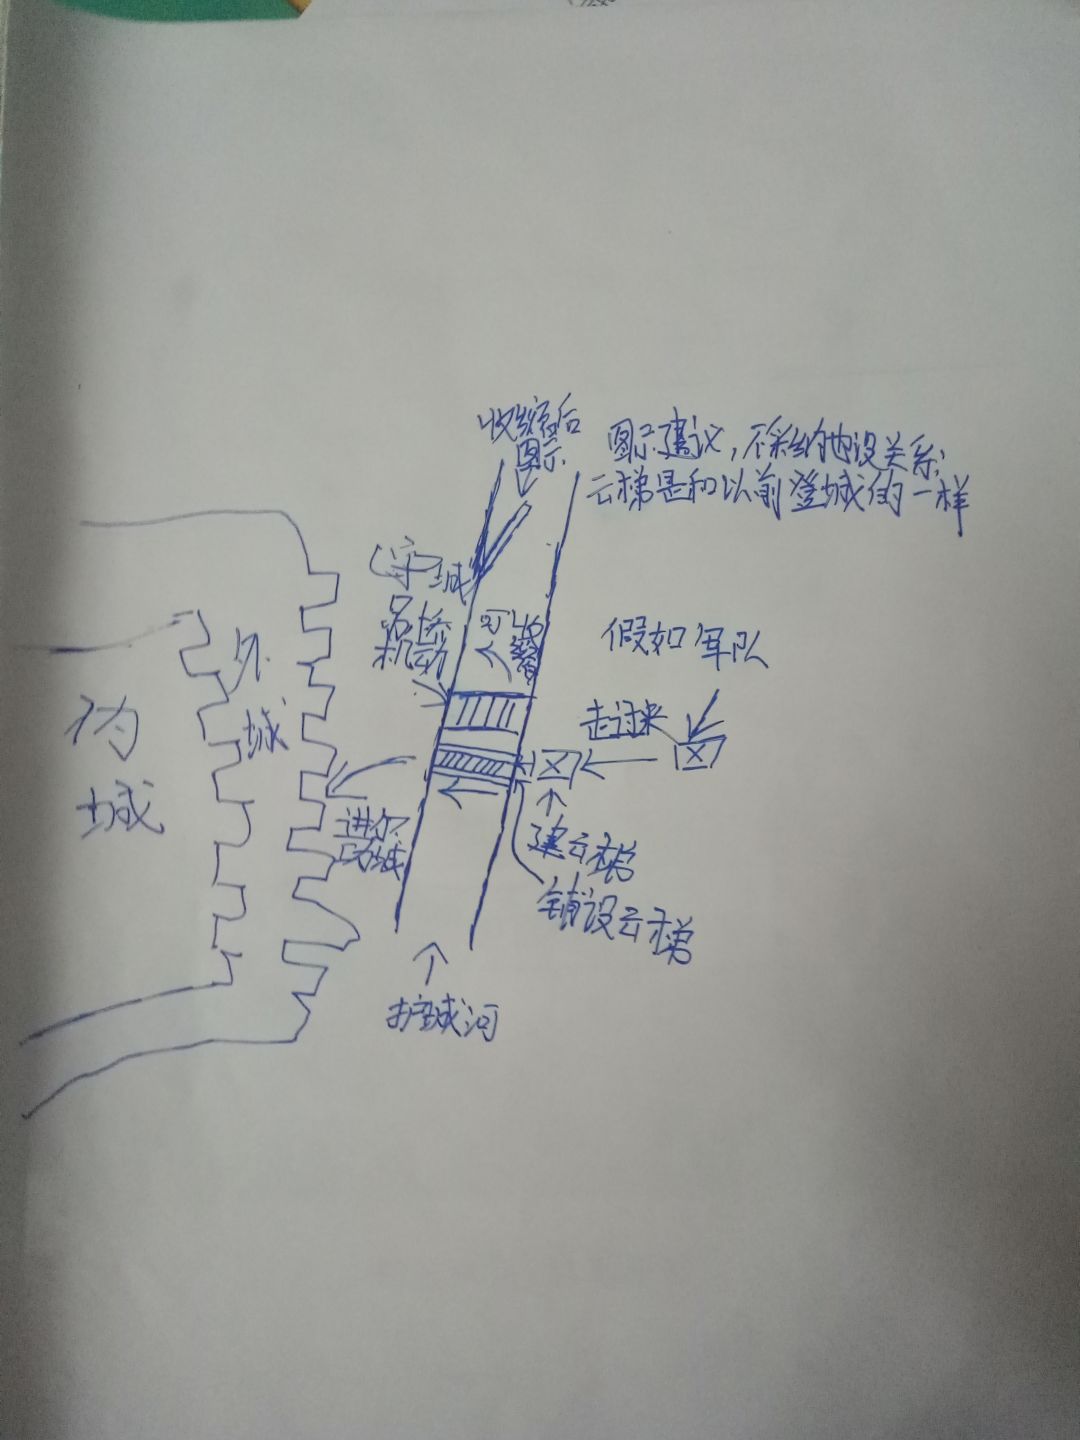 收缩后
图示
图示建议,不彩纳也没关系;
云梯是和以前登城的一样
(守城
吊桥
机动
可收缩
假如军队
走过来
外
城
内
城
进尔
城
建云梯
铺设云梯
护城河